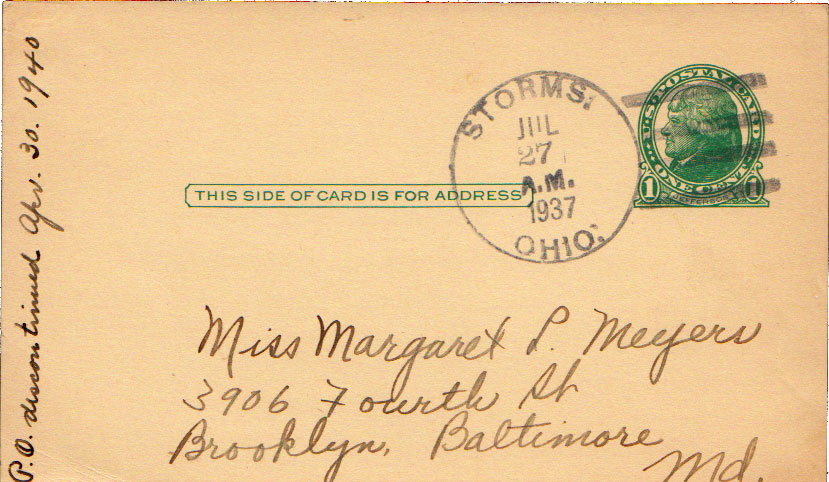 P.O. discontinued Apr. 30. 1940
THIS SIDE OF CARD IS FOR ADDRESS
STORMS,
JUL
27
A.M.
1937
OHIO.
U.S. POSTAL CARD
ONE CENT
1 JEFFERSON 1
Miss Margaret P. Meyers
3906 Fourth St
Brooklyn, Baltimore
Md.